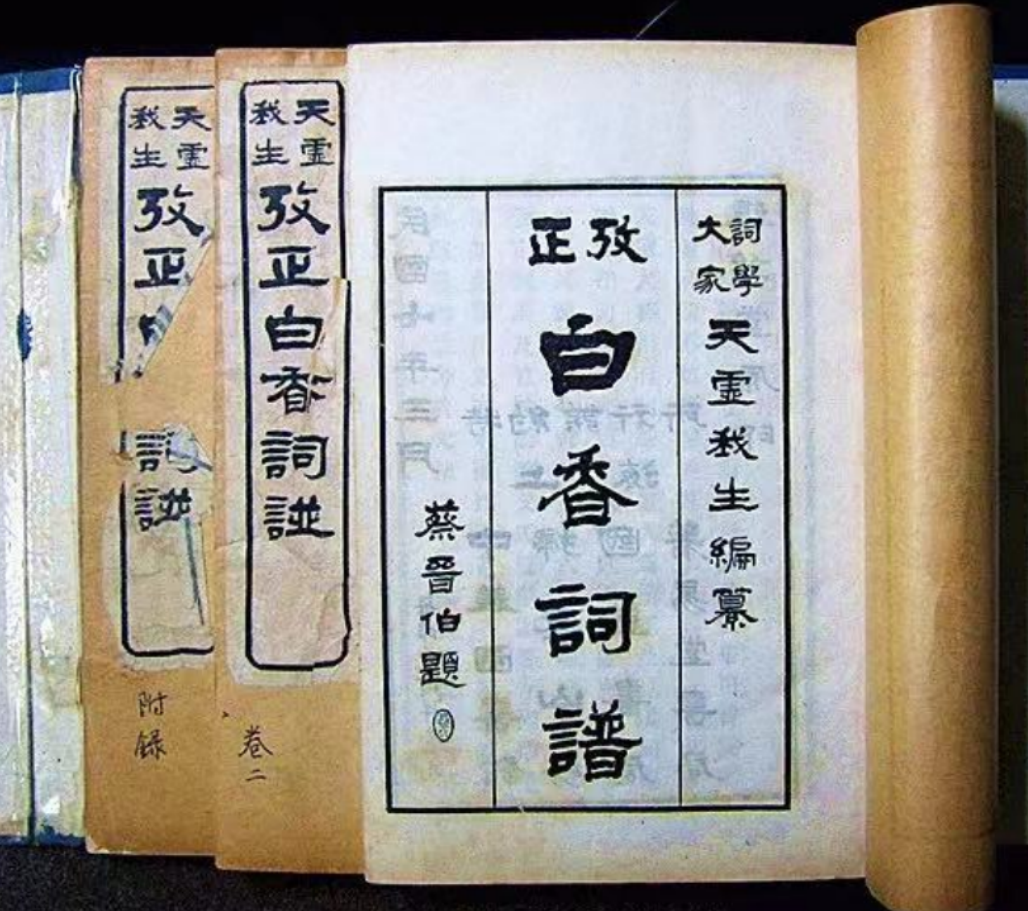 詞學大家天虛我生編纂
攷正白香詞譜
蔡晉伯題
天虛我生攷正白香詞譜
卷二
天虛我生攷正詞譜
附錄